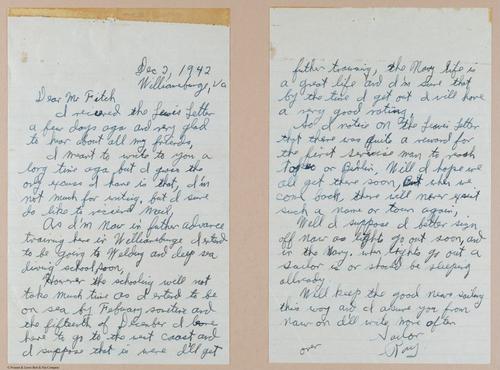 Dec 2, 1942
Williamsburg, Va
Dear Mr Fitch
I received the Lewis Letter
a few days ago and very glad
to hear about all my friends,
I meant to write to you a
long time ago but I guess the
only excuse I have is that, I'm
not much for writing, but I sure
do like to receive mail,
As I'm now in futher advance
training here in Williamsburg I
to be going to Welding and deep sea
diving school soon,
However the schooling will not
take much time as I to be
on sea by Febuary and
the fifteenth of December I leave
here to go to the west coast and
I suppose that is were I'll get
futher training, the Navy life is
a great life and I'm sure that
by the time I get out I will have
a very good rating
As I notice on the Lewis Letter
that there was quite a reward for
the first service man to reach
or Berlin, Well I hope we
all get there soon, But when we
come back there will never exist
such a name or town again,
Well I suppose I better sign
off now as lights go out soon, and
in the Navy, when lights go out a
sailor is or should be sleeping
allready
Will keep the good news sailing
this way and I assure you from
now on I'll write more often
Sailor
Ray
over